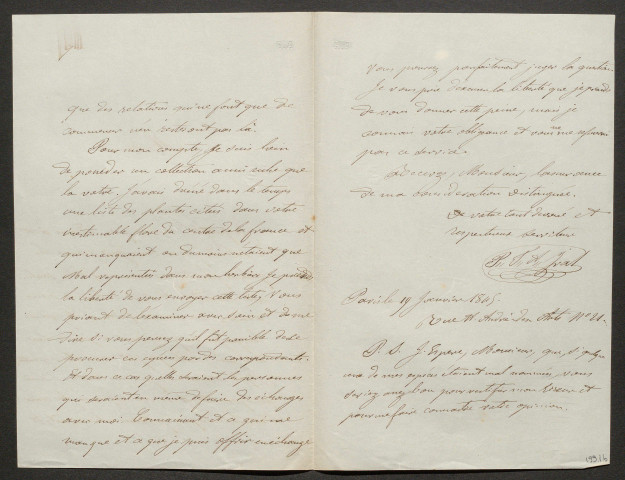 que des relations qui ne font que de
commencer n'en restent pas là.
Pour mon compte, je suis loin
de posseder un collection aussi riche que
la votre. J'avais dressé dans le temps
une liste des plantes citées dans votre
flore du centre de la france et
qui manquaient ou du moins n'étaient que
mal representées dans mon herbier. Je prends
la liberté de vous envoyer cette liste, vous
priant de l'examiner avec soin et de me
dire si vous pensez qu'il fut possible de se
procurer ces especes
et dans ce cas quelles seraient les personnes
qui seraient en mesure de faire des échanges
avec moi. Connaissant et ce qui me
manque et ce que je puis offrir en échange
vous pouvez parfaitement juger la question.
Je vous prie d'excuser la liberté que je prends
de vous donner cette peine, mais je
connais votre obligeance et
pas ce service.
Recevez, Monsieur, l'assurance
de ma consideration distinguée.
De votre tout devoué et
respectueux serviteur
Paris le 19 Janvier 1845.
Rue St André des Arts No
P. S. J'espere, Monsieur, que, si quelqu'
une de mes especes etaient mal nommées, vous
seriez assez bon pour rectifier mon erreur et
pour me faire connaitre votre opinion.